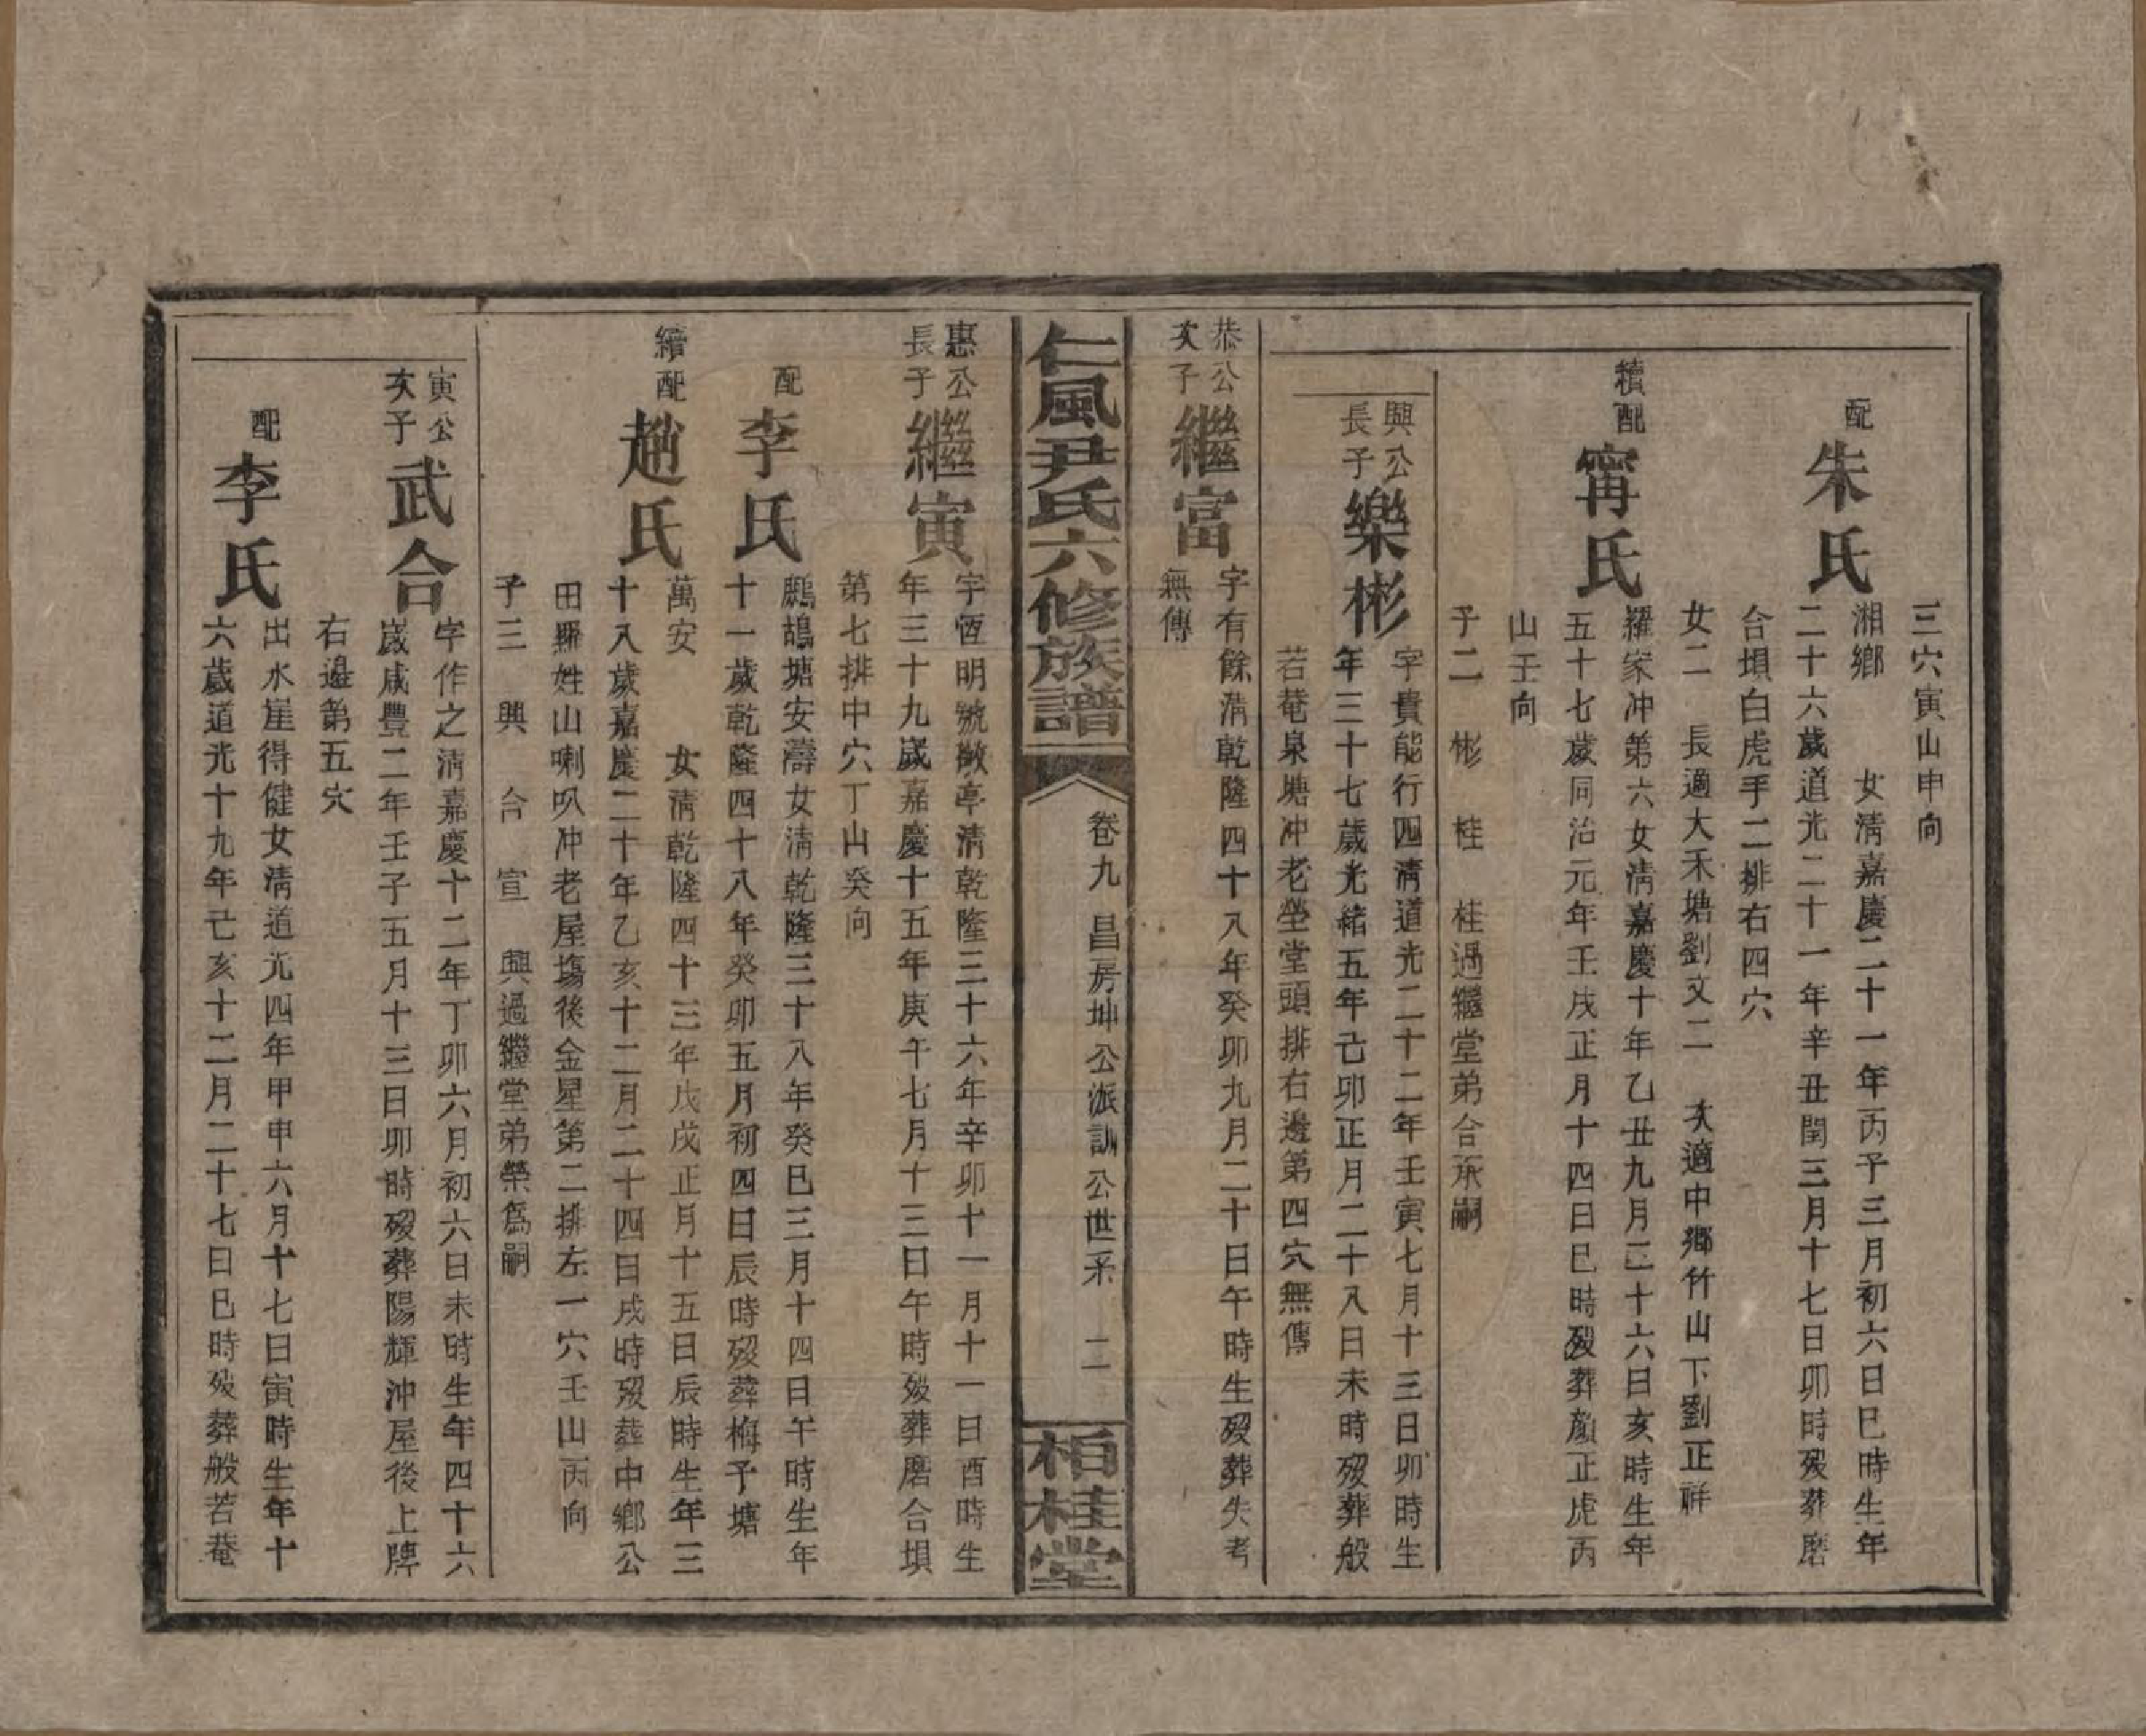 三穴寅山申向
配
朱氏
湘鄉 女清嘉慶二十一年丙子三月初六日巳時生年
二十六歲道光二十一年辛丑閏三月十七日卯時歿葬磨
合垻白虎手二排右四穴
女二 長適大禾塘劉文二 次適中鄉竹山下劉正祥
續配
甯氏
羅家冲第六女清嘉慶十年乙丑九月二十六日亥時生年
五十七歲同治元年壬戌正月十四日巳時歿葬顏正虎丙
山壬向
子二 彬 桂 桂過繼堂弟合承嗣
興公
長子
樂彬
字貴能行四清道光二十二年壬寅七月十三日卯時生
年三十七歲光緒五年己卯正月二十八日未時歿葬般
若菴泉塘冲老塋堂頭排右邊第四穴無傳
恭公
次子
繼富
字有餘清乾隆四十八年癸卯九月二十日午時生歿葬失考
無傳
仁風尹氏六修族譜
卷九 昌房坤公派訓公世系 二
栢桂堂
惠公
長子
繼寅
字恆明號敬亭清乾隆三十六年辛卯十一月十一日酉時生
年三十九歲嘉慶十五年庚午七月十三日午時歿葬磨合垻
第七排中穴丁山癸向
配
李氏
鷓鴣塘安濤女清乾隆三十八年癸巳三月十四日午時生年
十一歲乾隆四十八年癸卯五月初四日辰時歿葬梅子塘
續配
趙氏
萬安 女清乾隆四十三年戊戌正月十五日辰時生年三
十八歲嘉慶二十年乙亥十二月二十四日戌時歿葬中鄉公
田羅姓山喇叭冲老屋塲後金星第二排左一穴壬山丙向
子三 興 合 宣 興過繼堂弟榮爲嗣
寅公
次子
武合
字作之清嘉慶十二年丁卯六月初六日未時生年四十六
歲咸豐二年壬子五月十三日卯時歿葬陽輝沖屋後上牌
右邊第五穴
配
李氏
出水崖得健女清道光四年甲申六月十七日寅時生年十
六歲道光十九年己亥十二月二十七日巳時歿葬般若菴